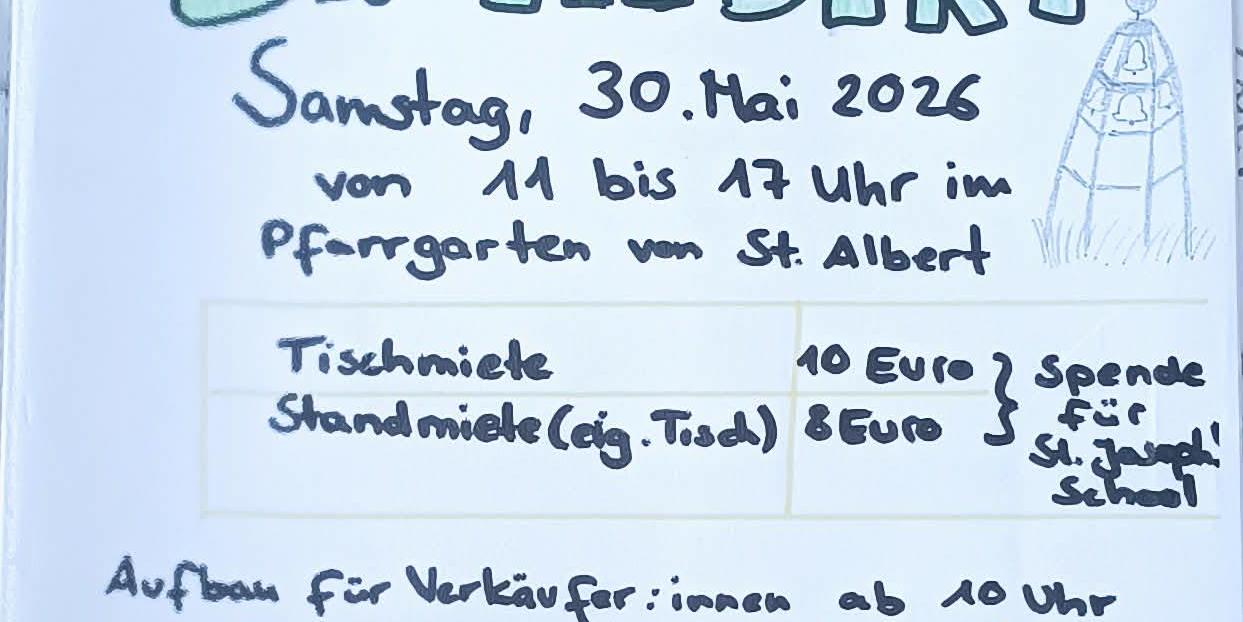 Samstag, 30. Mai 2026
von 11 bis 17 Uhr im
Pfarrgarten von St. Albert
Tischmiete 10 Euro } Spende
Standmiete (eig. Tisch) 8 Euro für
St. Joseph'
School
Aufbau für Verkäufer:innen ab 10 Uhr